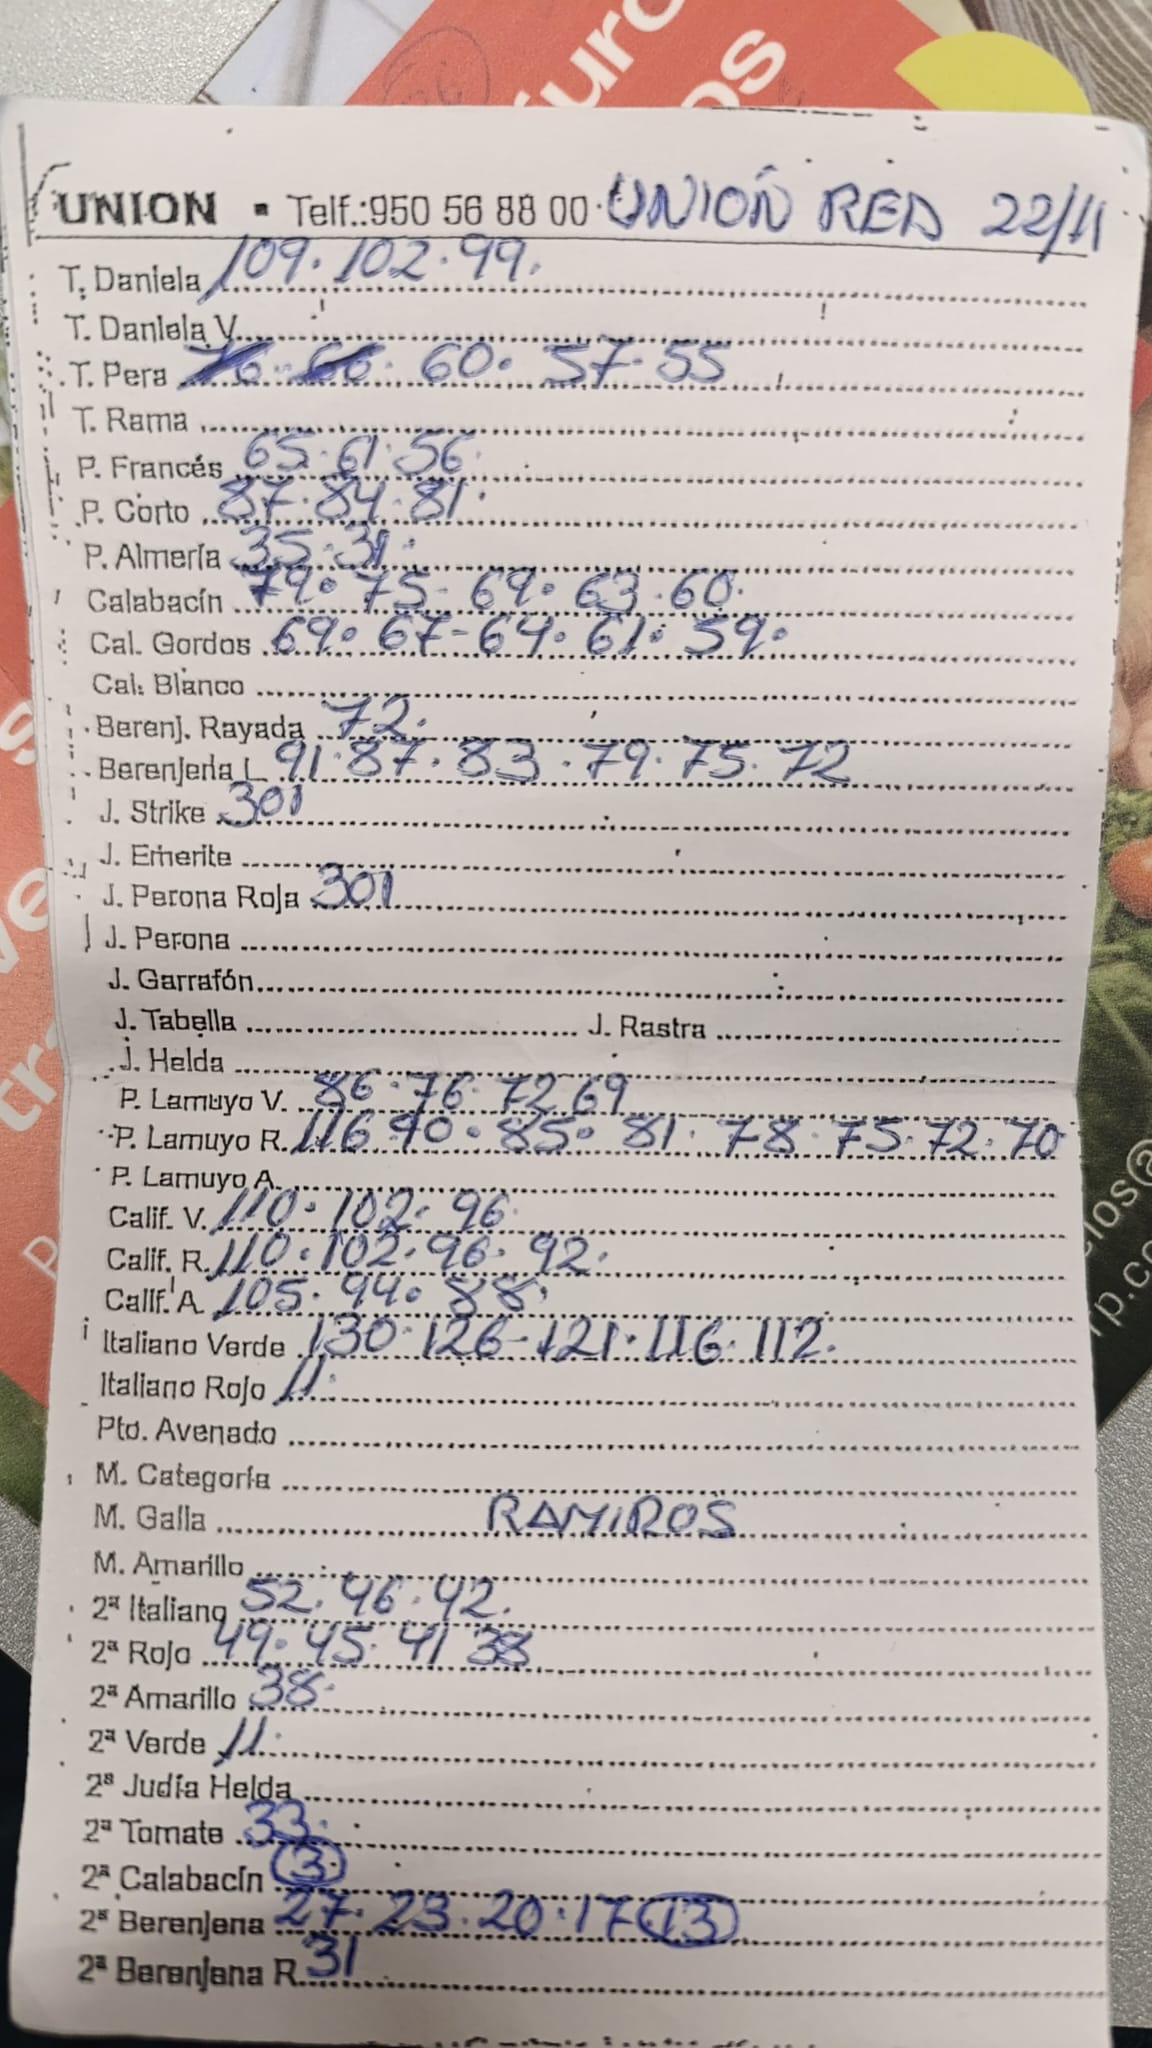 furo
os
UNION • Telf.:950 56 88 00 UNIÓN RED 22/11
T. Daniela 109. 102. 99.
T. Daniela V.
T. Pera 76. 66. 60. 57. 55
T. Rama
P. Francés 65. 61. 56.
P. Corto 87. 84. 81.
P. Almería 35. 31.
Calabacín 79. 75- 69. 63. 60.
Cal. Gordos 69. 67- 64. 61. 59.
Cal. Blanco
Berenj. Rayada 72.
Berenjena L 91. 87. 83. 79. 75. 72
J. Strike 301
J. Emerite
J. Perona Roja 301
J. Perona
J. Garrafón
J. Tabella J. Rastra
J. Helda
P. Lamuyo V. 86. 76. 72 69
P. Lamuyo R. 116 90. 85. 81. 78. 75. 72. 70
P. Lamuyo A.
Calif. V. 110. 102. 96.
Calif. R. 110. 102. 96. 92.
Calif. A. 105. 94. 88.
Italiano Verde 130. 126- 121. 116. 112.
Italiano Rojo 11.
Pto. Avenado
M. Categoría
M. Galia RAMIROS
M. Amarillo
2ª Italiano 52. 46. 42.
2ª Rojo 49. 45. 41 38
2ª Amarillo 38.
2ª Verde 11.
2ª Judía Helda
2ª Tomate 33.
2ª Calabacín 3
2ª Berenjena 27. 23. 20. 17 13
2ª Berenjena R. 31